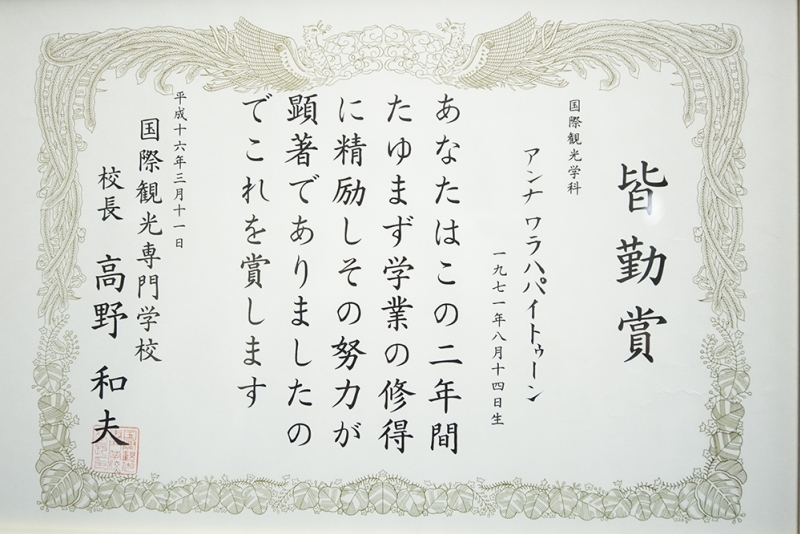 皆勤賞
国際観光学科
アンナ ワラハパイトゥーン
一九七一年八月十四日生
あなたはこの二年間
たゆまず学業の修得
に精励しその努力が
顕著でありましたの
でこれを賞します
平成十六年三月十一日
国際観光専門学校
校長 高野 和夫